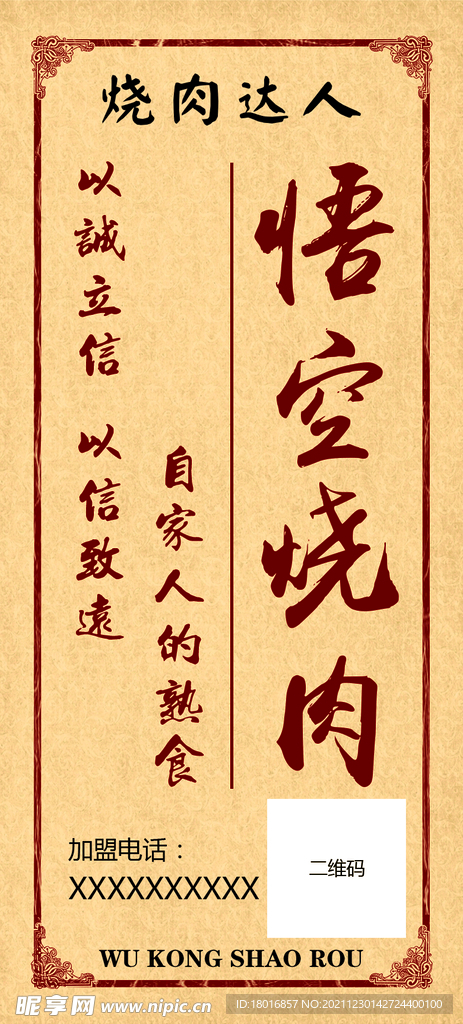 烧肉达人
悟空烧肉
自家人的熟食
以誠立信 以信致遠
加盟电话：
XXXXXXXXXX
二维码
WU KONG SHAO ROU
昵享网 www.nipic.cn
ID:18016857 NO:20211230142724400100